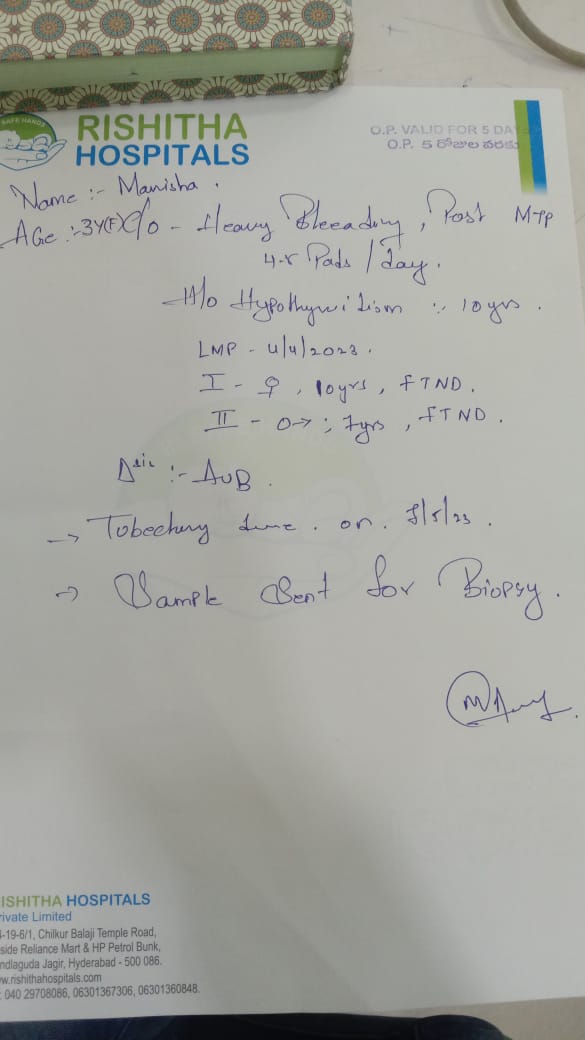 SAFE HANDS
RISHITHA
HOSPITALS
O.P. VALID FOR 5 DAYS
O.P. 5 రోజుల వరకు
Name :- Manisha.
Age :- 34(F) C/o - Heavy Bleeading, Post MTP
4-5 Pads / Day.
H/o Hypothyroidism :- 10yrs.
LMP - 4/4/2023.
I - ♀, 10yrs, FTND.
II - ; 7yrs, FTND.
:- AUB.
→ on. /5/23.
→ Sample Sent for Biopsy.
ISHITHA HOSPITALS
rivate Limited
-19-6/1, Chilkur Balaji Temple Road,
side Reliance Mart & HP Petrol Bunk,
ndlaguda Jagir, Hyderabad - 500 086.
w.rishithahospitals.com
: 040 29708086, 06301367306, 06301360848.